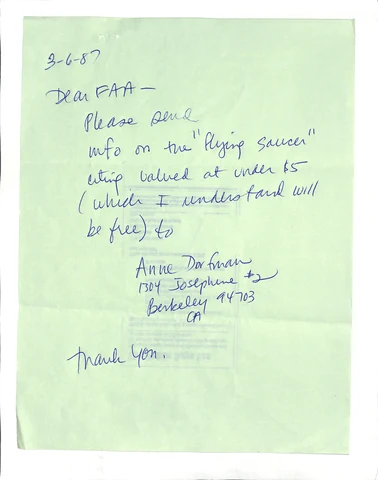 3-6-87
Dear FAA —
Please send
info on the "flying saucer"
citing valued at under $5
(which I understand will
be free) to
Anne Dorfman
1304 Josephine #2
Berkeley 94703
CA
Thank you.